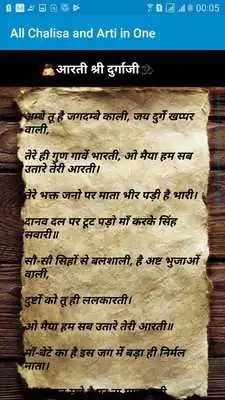 00:05
All Chalisa and Arti in One
🙏आरती श्री दुर्गाजी🕉
अम्बे तू है जगदम्बे काली, जय दुर्गे खप्पर
वाली,
तेरे ही गुण गावें भारती, ओ मैया हम सब
उतारे तेरी आरती।
तेरे भक्त जनो पर माता भीर पड़ी है भारी।
दानव दल पर टूट पड़ो माँ करके सिंह
सवारी॥
सौ-सौ सिहों से बलशाली, है अष्ट भुजाओं
वाली,
दुष्टों को तू ही ललकारती।
ओ मैया हम सब उतारे तेरी आरती॥
माँ-बेटे का है इस जग में बड़ा ही निर्मल
नाता।